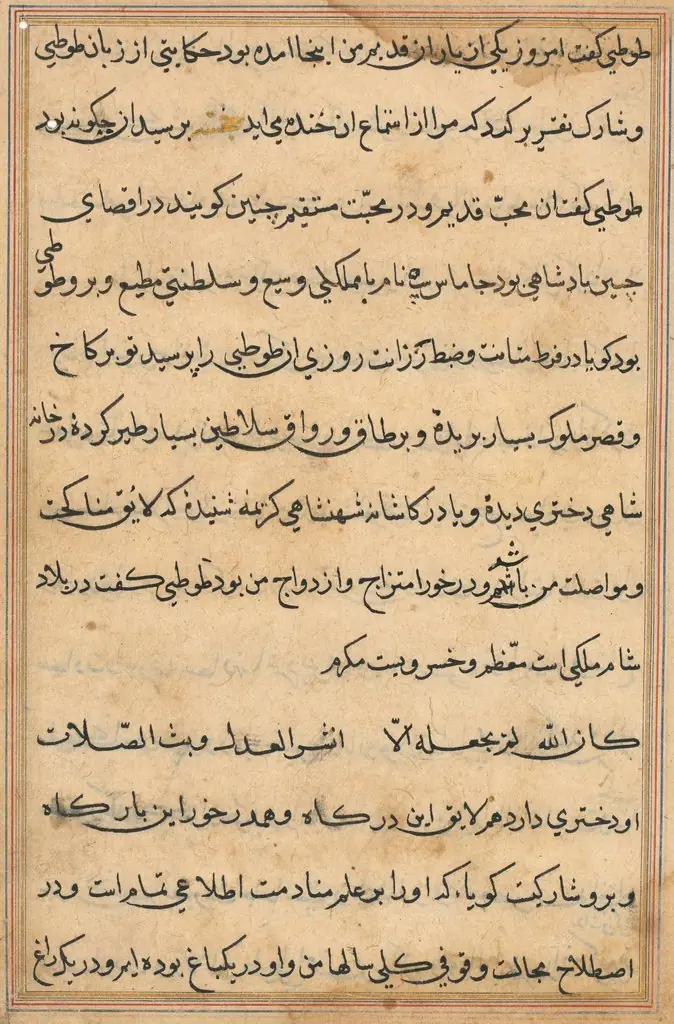 طوطی گفت امروز یکی از یاران قدیم من اینجا امده بود حکایتی از زبان طوطیی
و شارک تقریر کرد که مرا از استماع ان خنده می اید خجسته پرسید ان چکونه بود
طوطی گفت ان محبّ قدیم و در محبّت مستقیم چنین کویند در اقصای
چین پادشاهی بود جاماس نام با مملکتی وسیع و سلطنتی مطیع و برو طوطی
بود کویا در فرط متانت و ضبط رزانت روزی ازن طوطیی را پرسید تو بر کاخ
و قصر ملوک بسیار بریدهٔ و بر طاق و رواق سلاطین بسیار طیر کردهٔ در خانه
شاهی دختری دیدهٔ و یا در کاشانه شهنشاهی کریمه شنیدهٔ که لایق مناکحت
و مواصلت من باشد و در خور امتزاج و ازدواج من بود طوطی کفت در بلاد
شام ملکی است معّظم و خسرویست مکرم
کان الله لم یجعله الّا انشر العدل و بث الصّلات
او دختری دارد هم لایق این درکاه و هم درخور این بارکاه
و برو شارکیت کویاء که او را بر علم منادمت اطلاعی تمام است و در
اصطلاح مجالت وقوفی کلی سالها من و او در یکباغ بوده ایم و در یک راغ